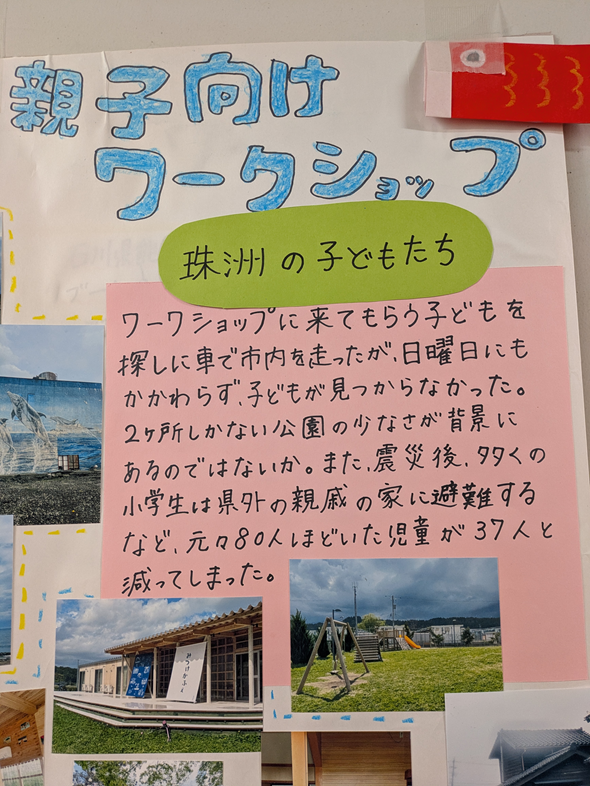 親子向け
ワークショップ
珠洲の子どもたち
ワークショップに来てもらう子どもを
探しに車で市内を走ったが、日曜日にも
かかわらず、子どもが見つからなかった。
2ヶ所しかない公園の少なさが背景に
あるのではないか。また、震災後、多くの
小学生は県外の親戚の家に避難する
など、元々80人ほどいた児童が37人と
減ってしまった。